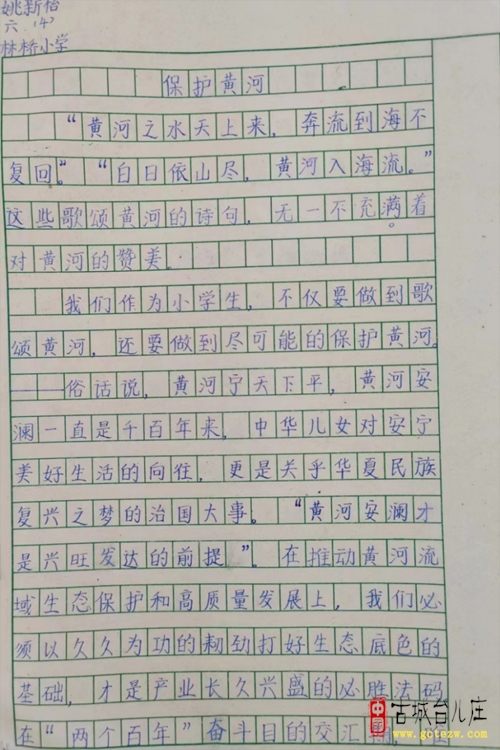 姚新怡
六.(4)
林桥小学
保护黄河
“黄河之水天上来，奔流到海不
复回。”“白日依山尽，黄河入海流。”
这些歌颂黄河的诗句，无一不充满着
对黄河的赞美。
我们作为小学生，不仅要做到歌
颂黄河，还要做到尽可能的保护黄河。
俗话说，黄河宁天下平，黄河安
澜一直是千百年来，中华儿女对安宁
美好生活的向往，更是关乎华夏民族
复兴之梦的治国大事。“黄河安澜才
是兴旺发达的前提”。在推动黄河流
域生态保护和高质量发展上，我们必
须以久久为功的韧劲打好生态底色的
基础，才是产业长久兴盛的必胜法码
在“两个百年”奋斗目的交汇
古城台儿庄
www.gctezw.com